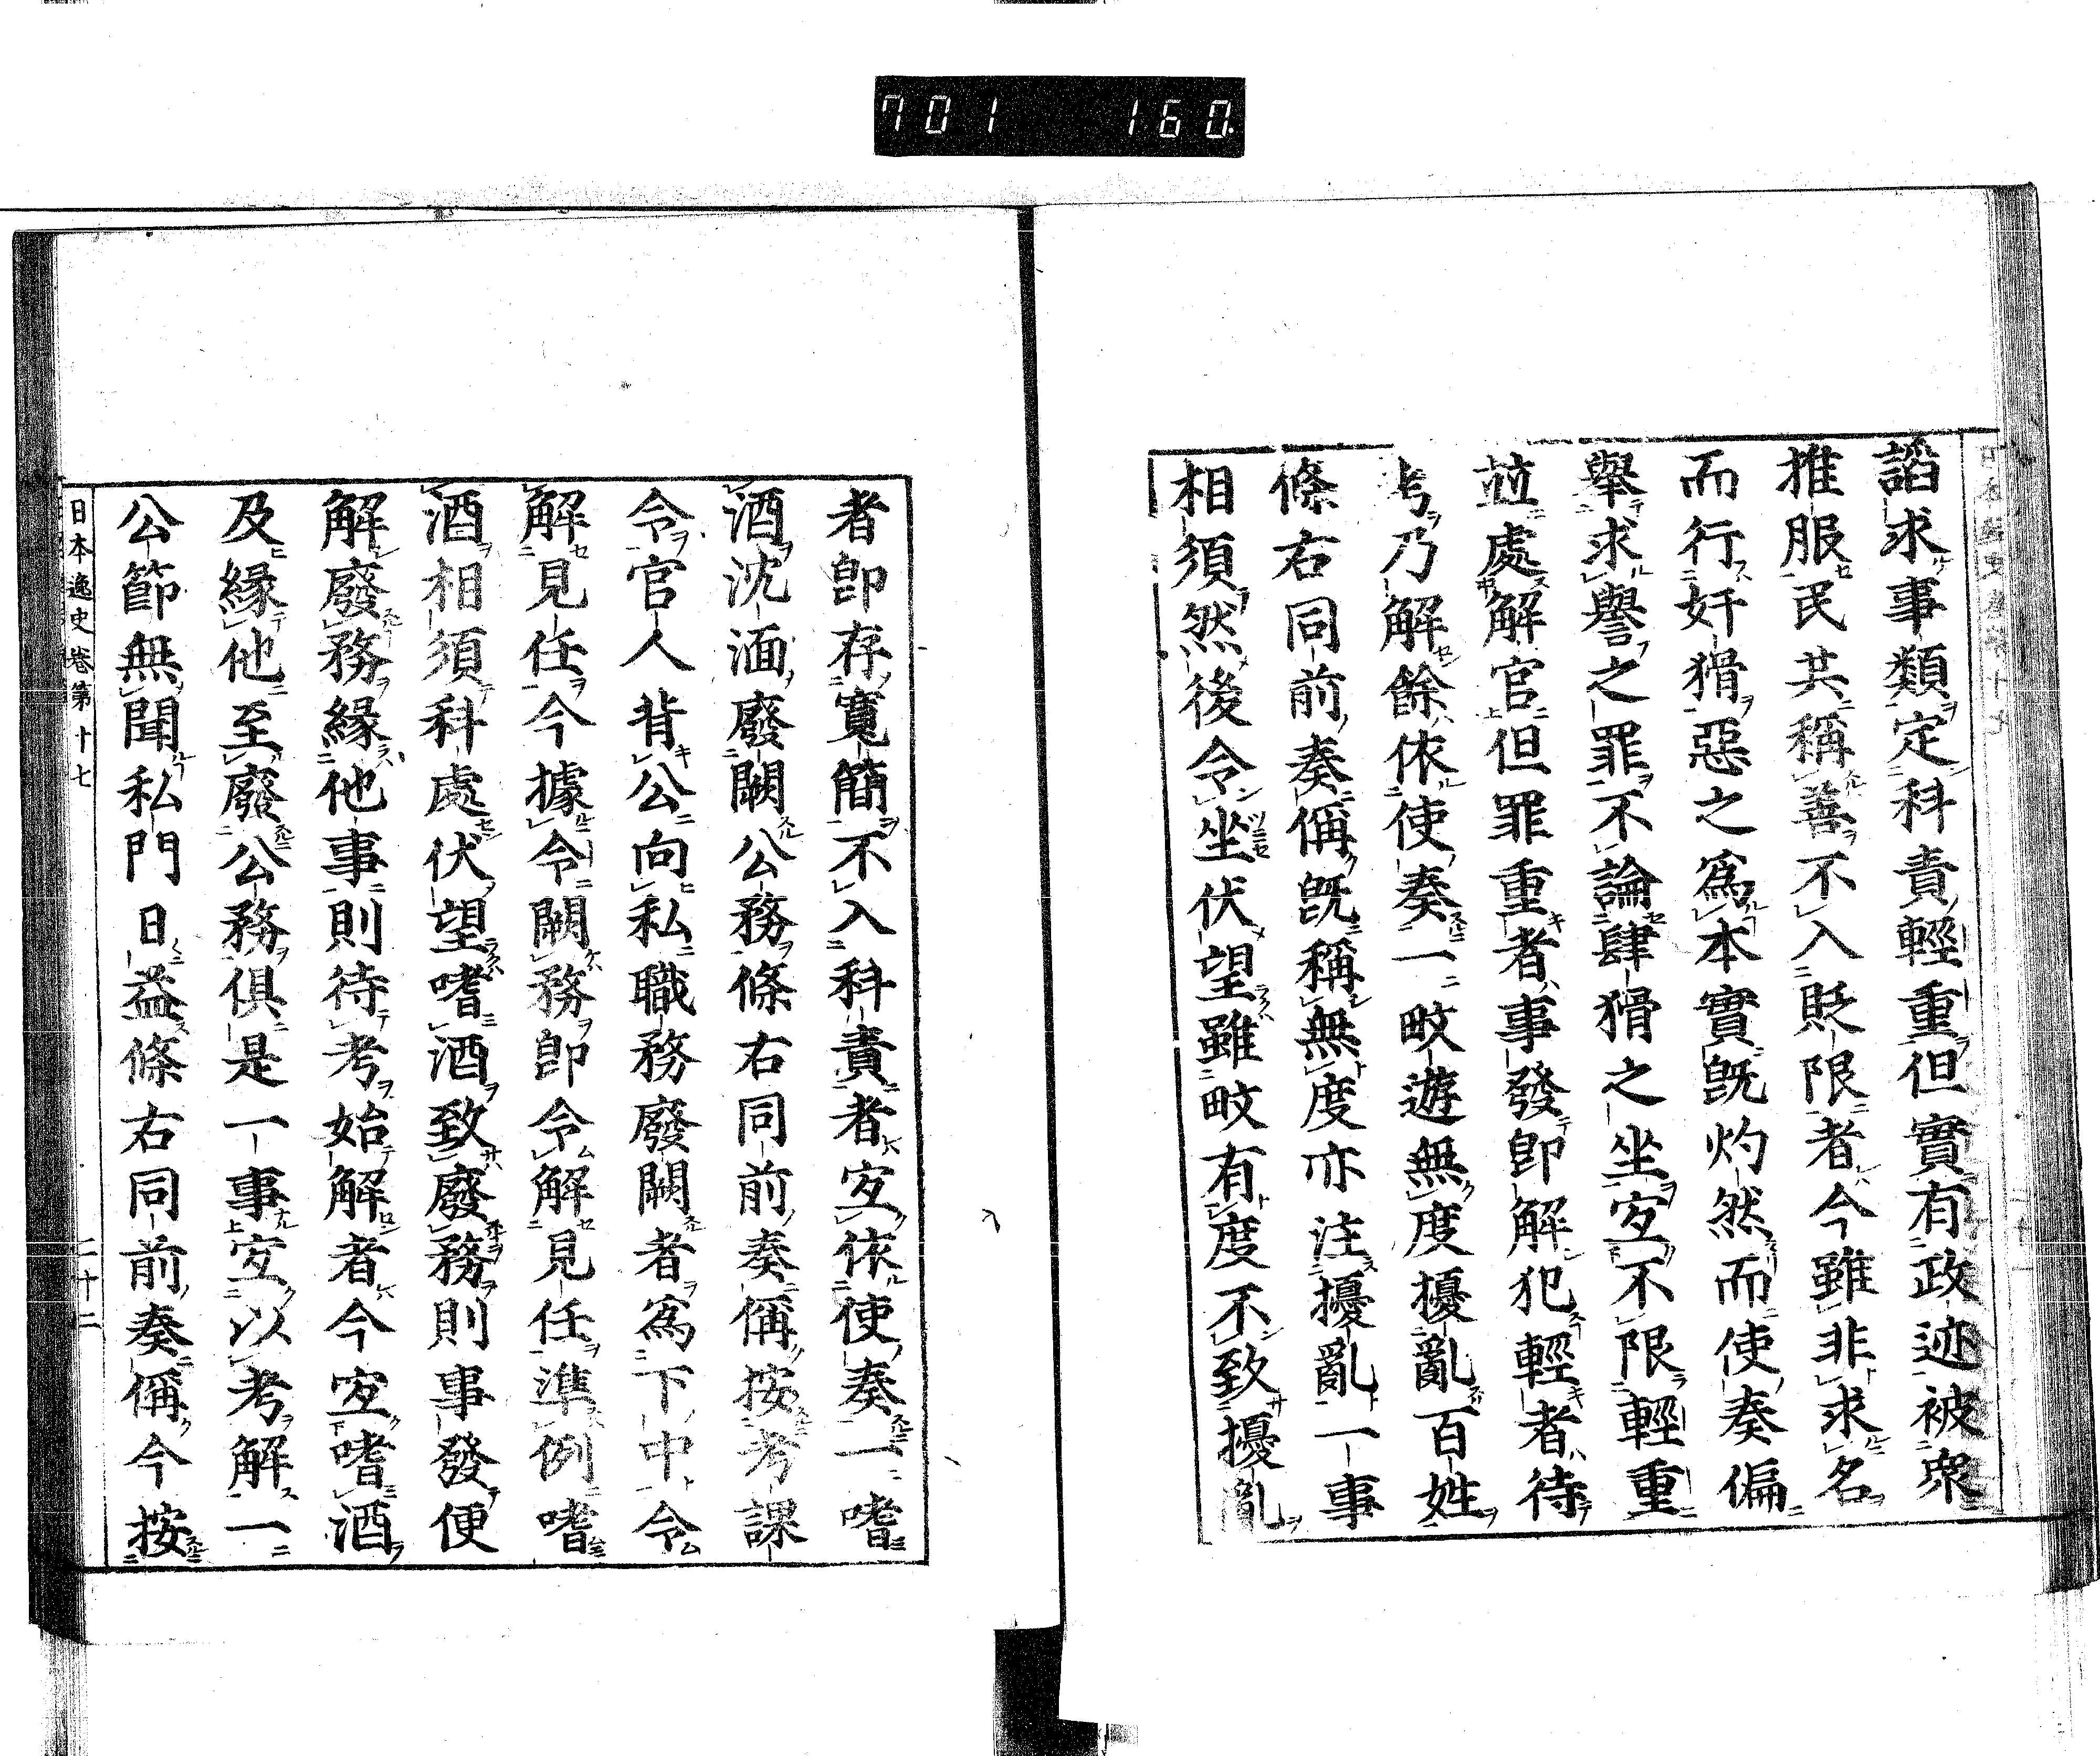 701 160
諂求事類定科責輕重但實有政迹被衆
推服民共稱善不入貶限者今雖非求名
而行奸猾惡之爲本實既灼然而使奏偏
舉求譽之罪不論肆猾之坐宜不限輕重
並處解官但罪重者事發即解犯輕者待
考乃解餘依使奏一畋遊無度擾亂百姓
條右同前奏偁既稱無度亦注擾亂一事
相須然後令坐伏望雖畋有度不致擾亂
者即存寬簡不入科責者宜依使奏一嗜
酒沈湎廢闕公務條右同前奏偁按考課
令官人背公向私職務廢闕者爲下中令
解見任今據令闕務即令解見任準例嗜
酒相須科處伏望嗜酒致廢務則事發便
解廢務緣他事則待考始解者今宜嗜酒
及緣他至廢公務俱是一事宜以考解一
公節無聞私門日益條右同前奏偁今按
日本逸史卷第十七 二十二